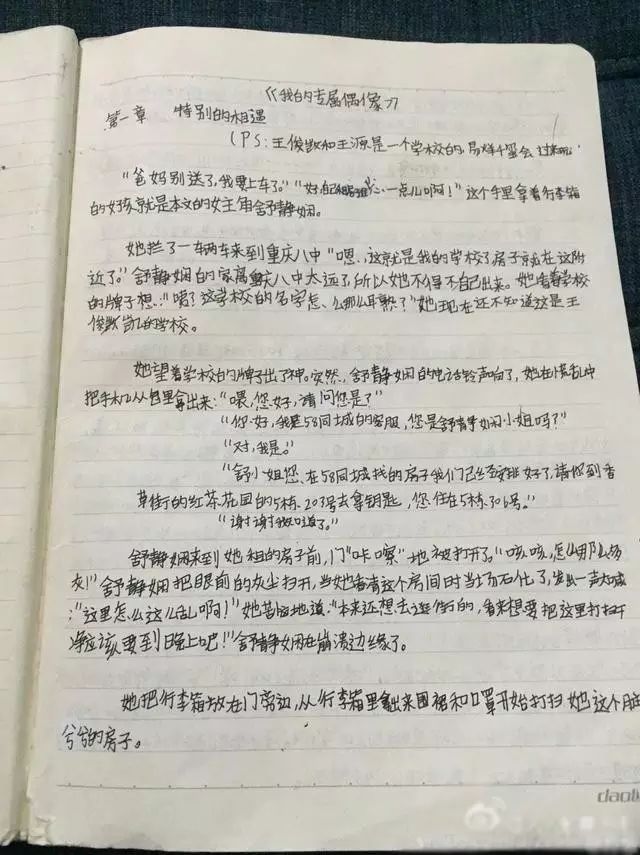 《我的专属偶像》
第一章 特别的相遇
(PS:王俊凯和王源是一个学校的,易烊千玺会过来玩
"爸妈别送了,我要上车了。""好,自己小心一点儿啊!"这个手里拿着行李箱
的女孩就是本文的女主角舒静娴。
她拦了一辆车来到重庆八中"嗯,这就是我的学校了房子就在这附
近了。"舒静娴的家离重庆八中太远了所以她不得不自己出来。她看着学校
的牌子想:"嗯?这学校的名字怎、么那么耳熟?"她现在还不知道这是王
俊凯的学校。
她望着学校的牌子出了神。突然,舒静娴的电话铃声响了,她在慌乱中
把手机从包里拿出来:"喂,您好,请问您是?"
"你好,我是58同城的客服,您是舒静娴小姐吗?"
"对,我是。"
"舒小姐您、在58同城找的房子我们已经安排好了,请您到香
草街的红茶花园的5栋.203号去拿钥匙,您住在5栋.306号。"
"谢谢我知道了。"
舒静娴来到她租的房子前,门"咔嚓"地被打开了。"咳咳,怎么那么多
灰!"舒静娴把眼前的灰尘扫开,当她看清这个房间时当场石化了,发出一声大喊
:"这里怎么这么乱啊!"她苦恼地道:"本来还想去逛街的,看来想要把这里打扫干
净应该要到晚上吧!"舒静娴在崩溃边缘了。
她把行李箱放在门旁边,从行李箱里拿出来围裙和口罩开始打扫她这个脏
兮兮的房子。